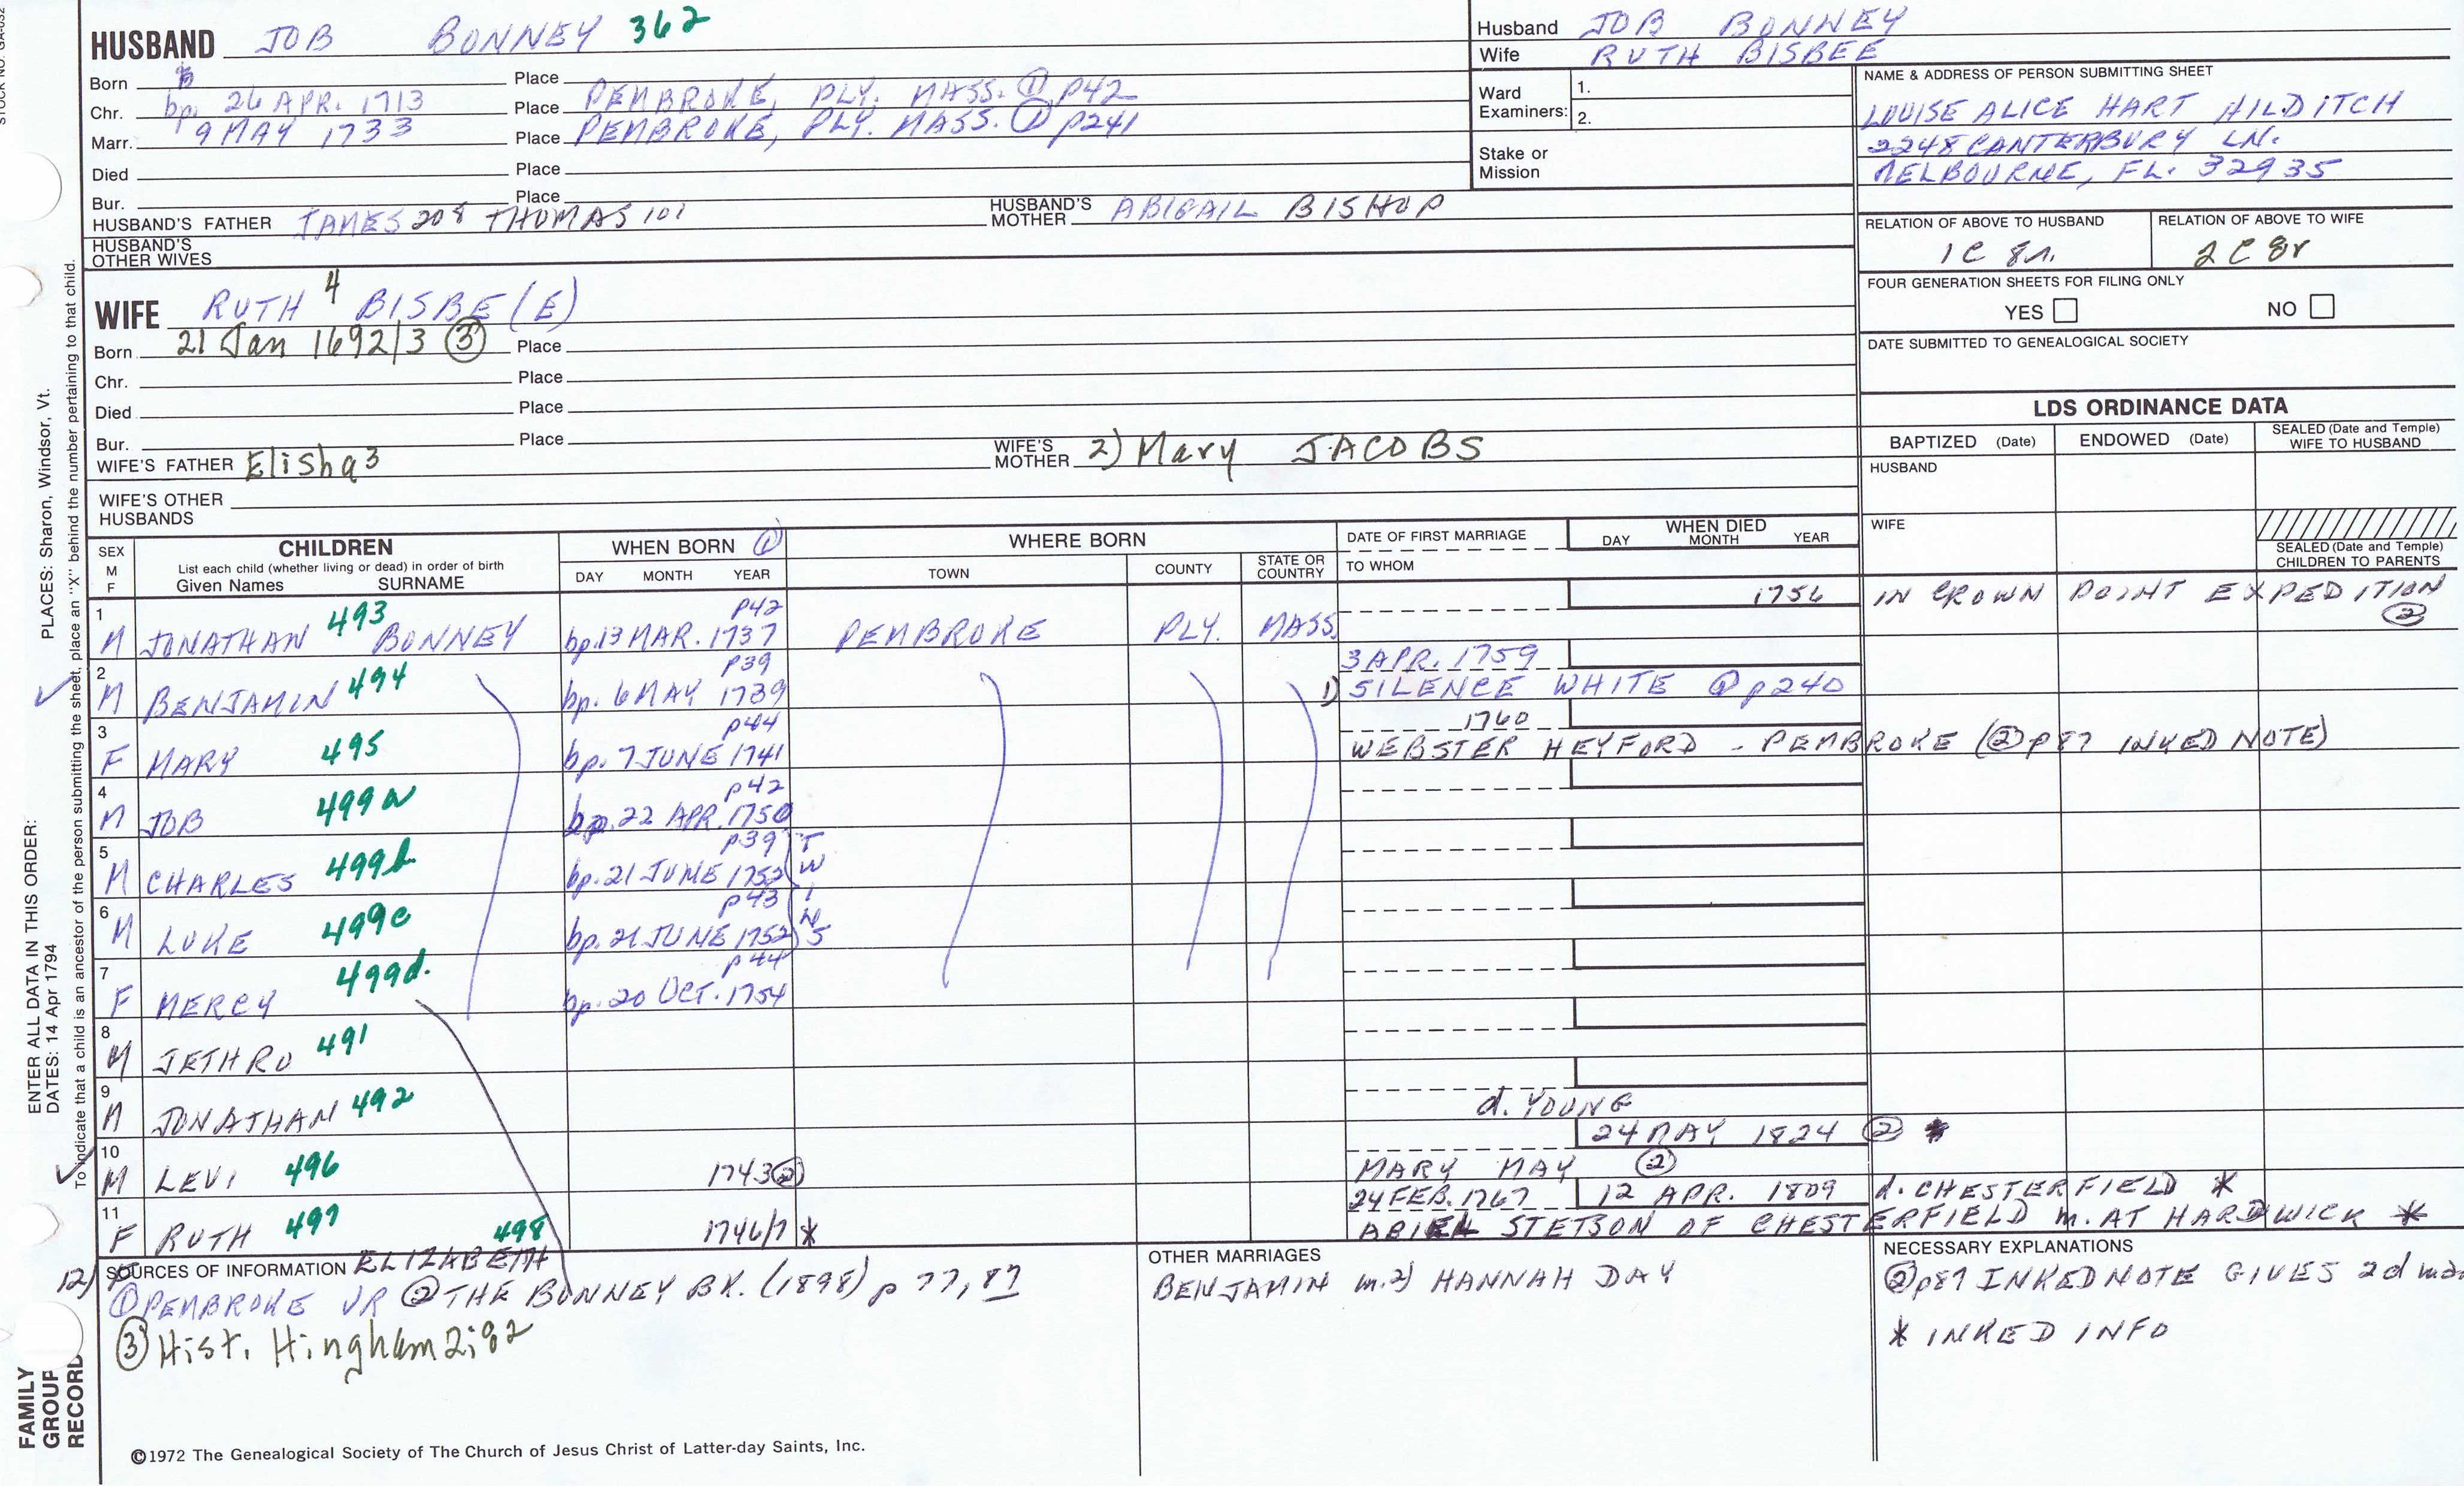 HUSBAND JOB BONNEY 362
Born Place
Chr. bp. 26 APR. 1713 Place PEMBROKE, PLY. MASS. ① p42
Marr. 9 MAY 1733 Place PEMBROKE, PLY. MASS. ① p241
Died Place
Bur. Place
HUSBAND'S FATHER JAMES 208 THOMAS 101 HUSBAND'S MOTHER ABIGAIL BISHOP
HUSBAND'S OTHER WIVES
WIFE RUTH 4 BISBE(E)
Born 21 Jan 1692/3 ③ Place
Chr. Place
Died Place
Bur. Place
WIFE'S FATHER Elisha3 WIFE'S MOTHER 2) Mary JACOBS
WIFE'S OTHER HUSBANDS
Husband JOB BONNEY
Wife RUTH BISBEE
Ward Examiners: 1.
2.
Stake or Mission
NAME & ADDRESS OF PERSON SUBMITTING SHEET
LOUISE ALICE HART HILDITCH
2248 CANTERBURY LN.
MELBOURNE, FL. 32935
RELATION OF ABOVE TO HUSBAND RELATION OF ABOVE TO WIFE
1C 8r. 2C 8r
FOUR GENERATION SHEETS FOR FILING ONLY
YES NO
DATE SUBMITTED TO GENEALOGICAL SOCIETY
LDS ORDINANCE DATA
BAPTIZED (Date) ENDOWED (Date) SEALED (Date and Temple) WIFE TO HUSBAND
HUSBAND
WIFE
SEALED (Date and Temple) CHILDREN TO PARENTS
SEX M F
CHILDREN
List each child (whether living or dead) in order of birth
Given Names SURNAME
WHEN BORN ①
DAY MONTH YEAR
WHERE BORN
TOWN COUNTY STATE OR COUNTRY
DATE OF FIRST MARRIAGE
TO WHOM
WHEN DIED
DAY MONTH YEAR
1 M JONATHAN 493 BONNEY p42 bp. 13 MAR. 1737 PEMBROKE PLY. MASS. 1756 IN CROWN POINT EXPEDITION ②
2 M BENJAMIN 494 p39 bp. 6 MAY 1739 3 APR. 1759
1) SILENCE WHITE ① p240
3 F MARY 495 p44 bp. 7 JUNE 1741 1760
WEBSTER HEYFORD - PEMBROKE (② p87 INKED NOTE)
4 M JOB 499a p42 bp. 22 APR. 1750
5 M CHARLES 499b p39 bp. 21 JUNE 1752 TWINS
6 M LUKE 499c p43 bp. 21 JUNE 1752
7 F MERCY 499d. p44 bp. 20 OCT. 1754
8 M JETHRO 491
9 M JONATHAN 492 d. YOUNG
10 M LEVI 496 1743 ② 24 MAY 1824 ② *
MARY MAY ②
11 F RUTH 497 1746/7 * 24 FEB. 1767 12 APR. 1809 d. CHESTERFIELD *
ABIEL STETSON OF CHESTERFIELD m. AT HARDWICK *
12) F ELIZABETH 498
SOURCES OF INFORMATION
① PEMBROKE VR ② THE BONNEY BK. (1898) p 77, 87
③ Hist. Hingham 2:82
OTHER MARRIAGES
BENJAMIN m. 2) HANNAH DAY
NECESSARY EXPLANATIONS
② p87 INKED NOTE GIVES 2d
* INKED INFO
©1972 The Genealogical Society of The Church of Jesus Christ of Latter-day Saints, Inc.
FAMILY GROUP RECORD
ENTER ALL DATA IN THIS ORDER:
DATES: 14 Apr 1794
PLACES: Sharon, Windsor, Vt.
To indicate that a child is an ancestor of the person submitting the sheet, place an "X" behind the number pertaining to that child.